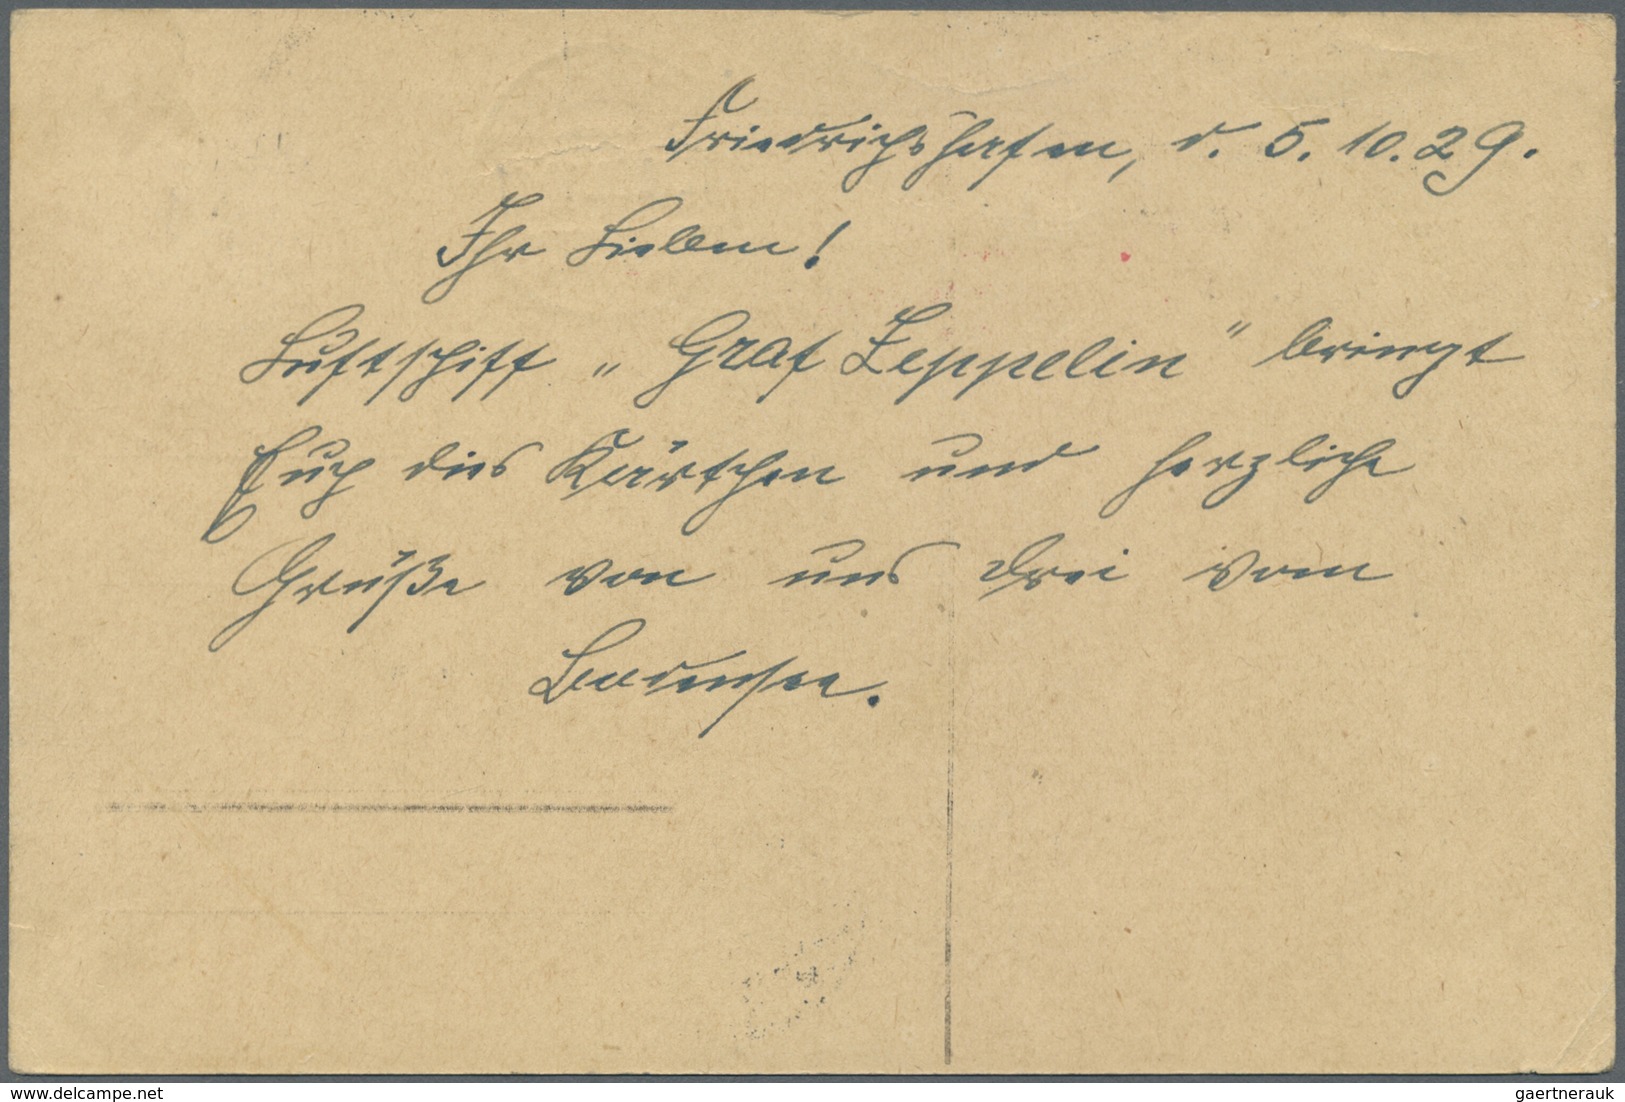 Friedrichshafen, d. 5.10.29.
Ihr Lieben!
Luftschiff „Graf Zeppelin" bringt
Euch dies Kärtchen und herzliche
Grüße von uns drei vom
Bodensee.
www.delcampe.net
gaertnerauk